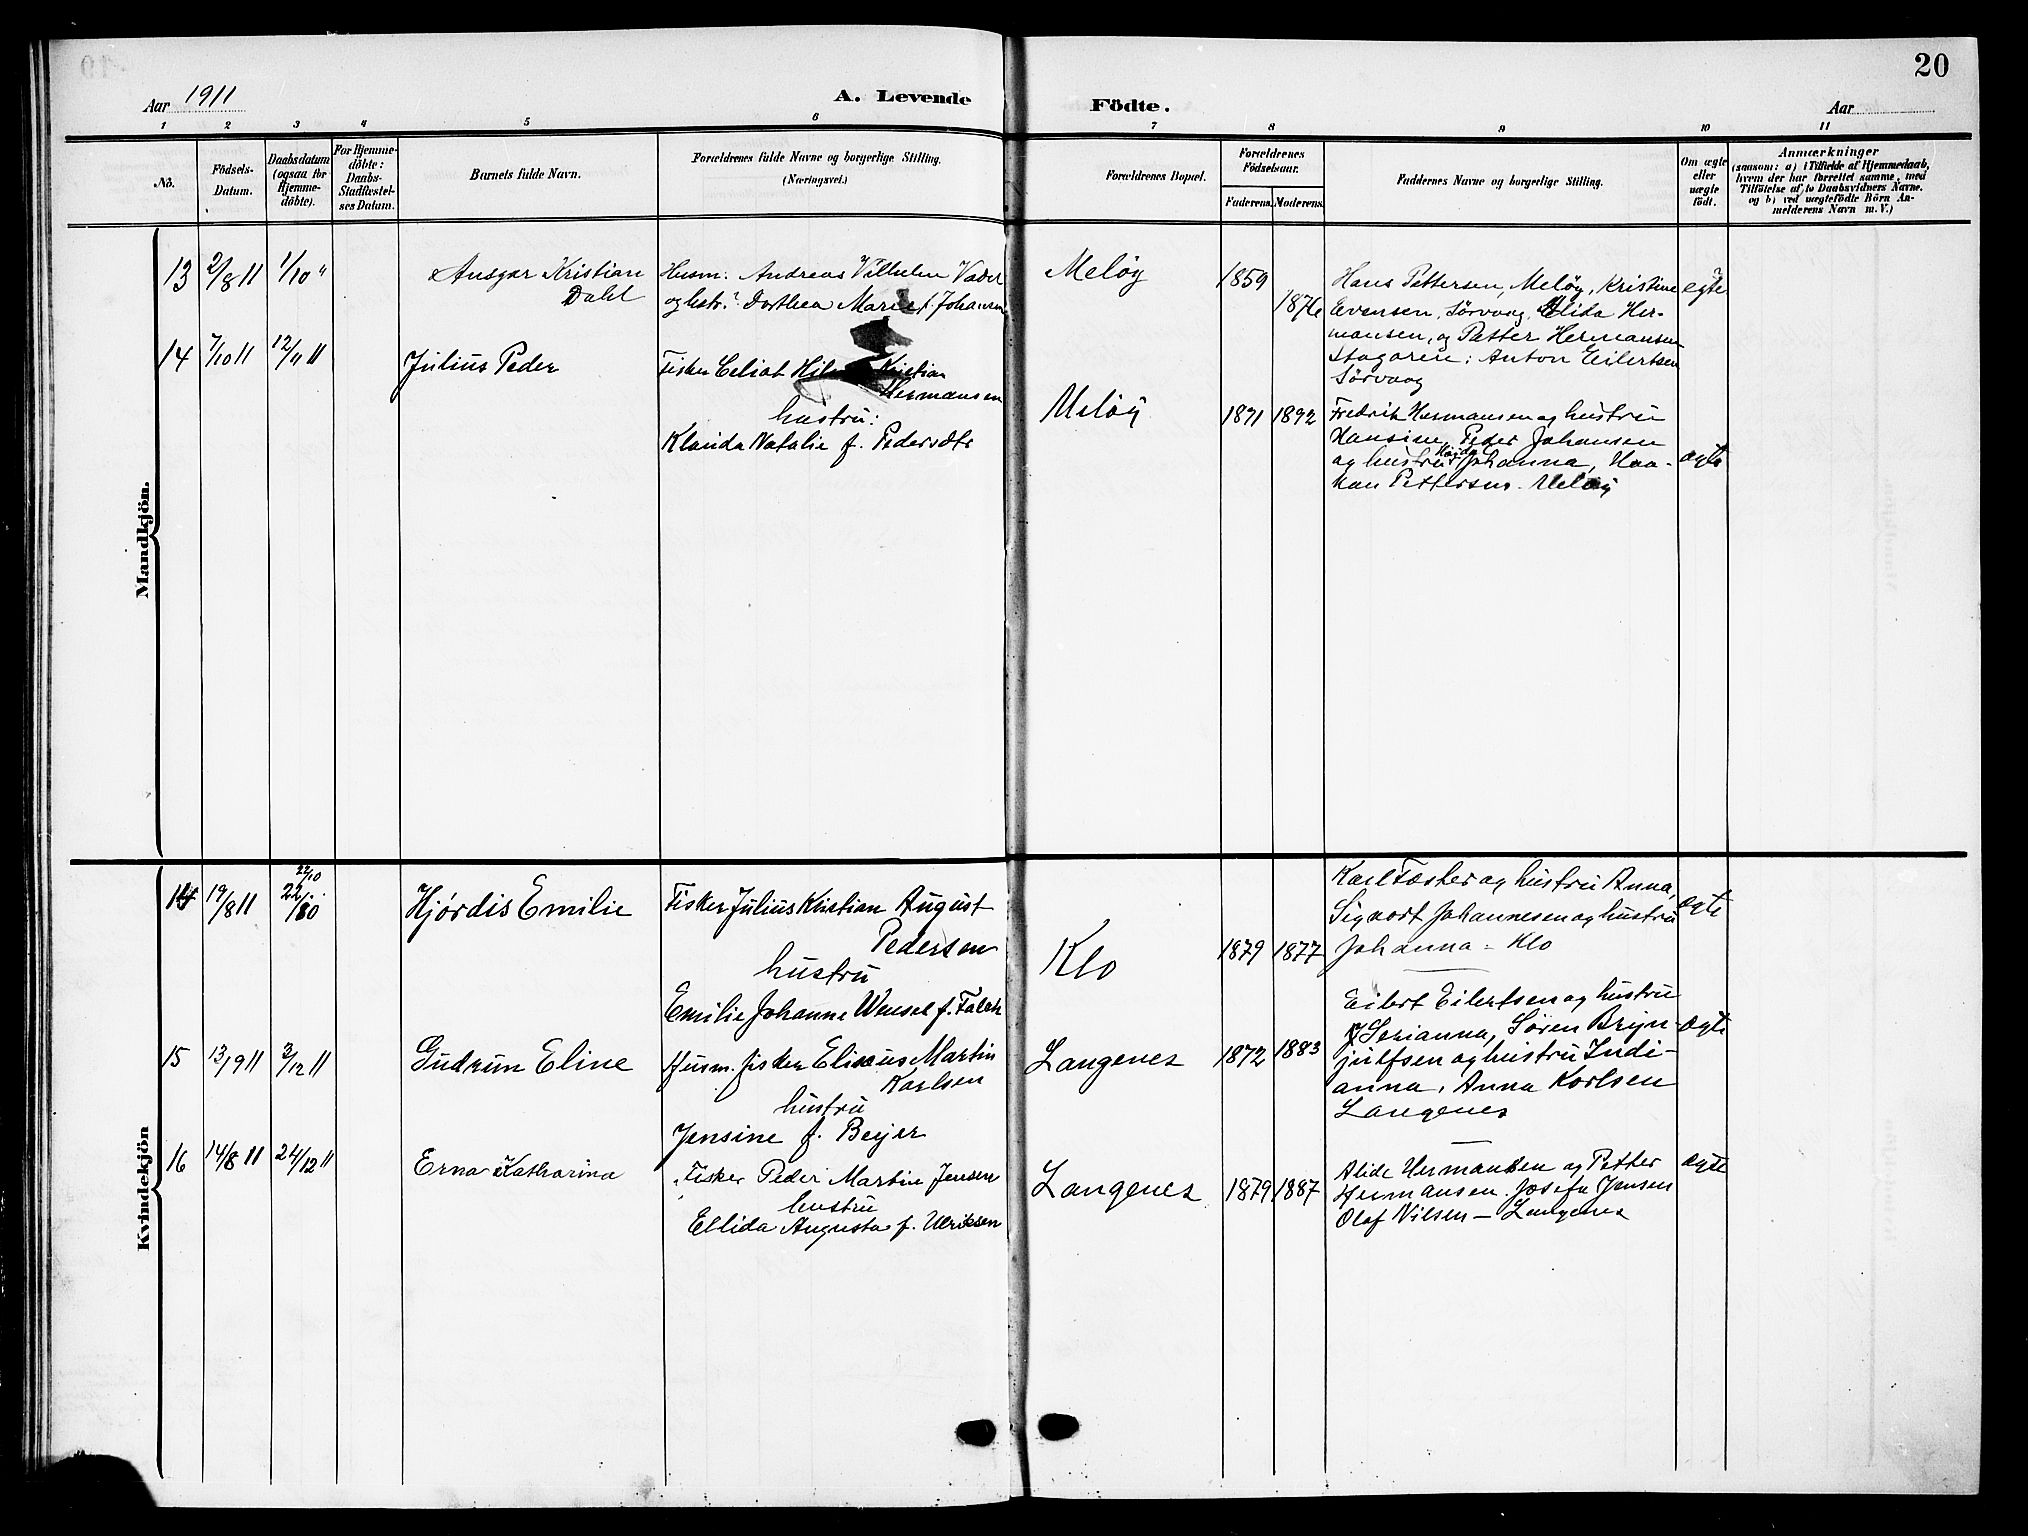 20
Aar 1911
A. Levende
Födte.
Aar
1 2 3 4 5 6 7 8 9 10 11
No.
Födsels-
Datum.
Daabsdatum
(ogsaa for
Hjemme-
döbte).
For Hjemme-
döbte:
Daabs-
Stadfæstel-
ses Datum.
Barnets fulde Navn.
Forældrenes fulde Navne og borgerlige Stilling.
(Næringsvei.)
Forældrenes Bopæl.
Forældrenes
Födselsaar.
Faderens. Moderens.
Faddernes Navne og borgerlige Stilling.
Om ægte
eller
uægte
födt.
Anmærkninger
(saasom: a) i Tilfælde af Hjemmedaab,
hvem der har forrettet samme, med
Tilföielse af to Daabsvidners Navne.
og b) ved uægtefödte Börn An-
melderens Navn m. V.)
Mandkjön.
13 2/8 11 1/10 "
Ansgar Kristian
Dahl
Husm: Andreas Vilhelm Vader
og hstr: Dorthea Marie f. Johansen
Meløy
1859
1876
Hans Pettersen, Meløy, Kristine
Evensen, Sörvaag, Elida Her-
mansen, og Petter Hermansen
Stagoren: Anton Eilertsen
Sörvaag
egte
14 7/10 11 12/11 11
Julius Peder
Fisker Eeliat Kristian
Hermansen
hustru:
Klauda Natalie f. Pedersdtr
Meløy
1871 1892
Fredrik Hermansen og hustru
Hansine, Peder Johansen
og hustru Johanna, Haa-
kon Pettersen. Meløy
ægte
Kvindekjön
14 19/8 11
22/10
22/10
Hjørdis Emilie
Fisker Julius Kristian August
Pedersen
hustru
Emilie Johanne Wensel f. Falch
Klo
1879 1877
Karl Fæster og hustru Anna,
Sigvart Johannesen og hustru
Johanna - Klo
ægte
15 13/9 11 3/12 11
Gudrun Eline
Husm. fisker Elinus Martin
Karlsen
hustru
Jensine f. Beyer
Langenes
1872 1883
Eilert Eilertsen og hustru
Serianna, Søren Bryn-
julfsen og hustru Indi-
anna, Anna Karlsen
Langenes
ægte
16 14/8 11 24/12 11
Erna Katharina
Fisker Peder Martin Jensen
hustru
Ellida Augusta f. Ulriksen
Langenes
1879 1887
Alide Hermansen og Petter
Hermansen. Josefa Jensen
Olaf Nilsen - Langenes
ægte